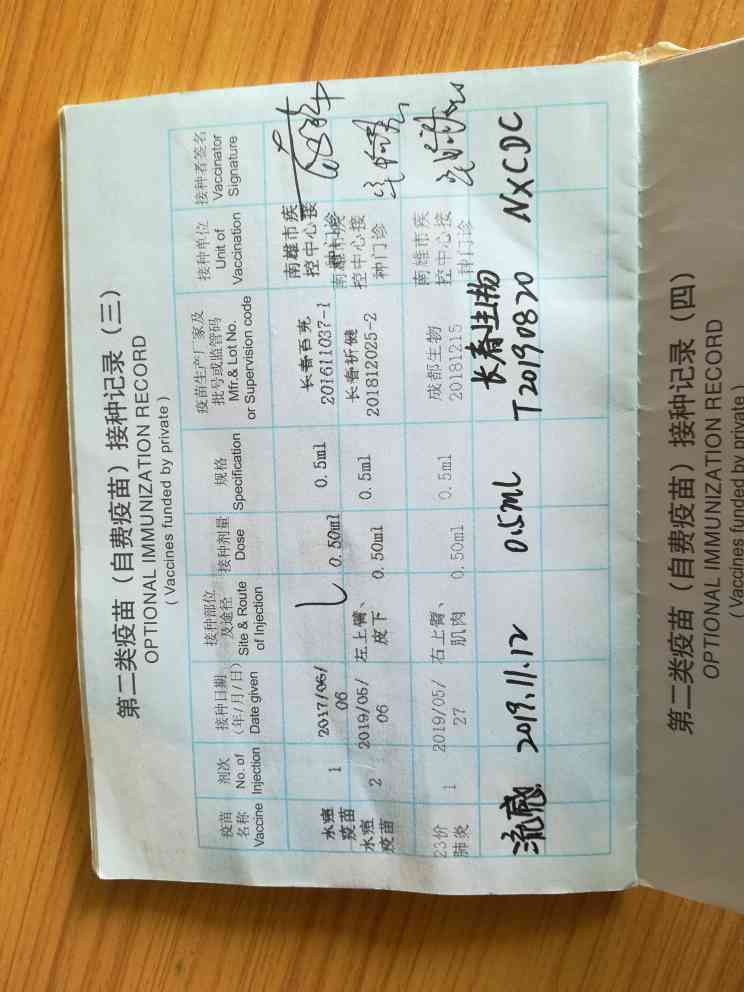 第二类疫苗（自费疫苗）接种记录（三）
OPTIONAL IMMUNIZATION RECORD
( Vaccines funded by private )
疫苗
名称
Vaccine
剂次
No. of
Injection
接种日期
（年/月/日）
Date given
接种部位
及途径
Site & Route
of Injection
接种剂量
Dose
规格
Specification
疫苗生产厂家及
批号或监管码
Mfr.& Lot No.
or Supervision code
接种单位
Unit of
Vaccination
接种者签名
Vaccinator
Signature
水痘
疫苗
1
2017/06/
06
0.50ml
0.5ml
长春百克
201611037-1
南雄市疾
控中心接
种门诊
水痘
疫苗
2
2019/05/
06
左上臂、
皮下
0.50ml
0.5ml
长春祈健
201812025-2
南雄市疾
控中心接
种门诊
23价
肺炎
1
2019/05/
27
右上臂、
肌肉
0.50ml
0.5ml
成都生物
20181215
南雄市疾
控中心接
种门诊
流感
2019.11.12
0.5ml
长春生物
T20190820
NXCDC
第二类疫苗（自费疫苗）接种记录（四）
OPTIONAL IMMUNIZATION RECORD
( Vaccines funded by private )